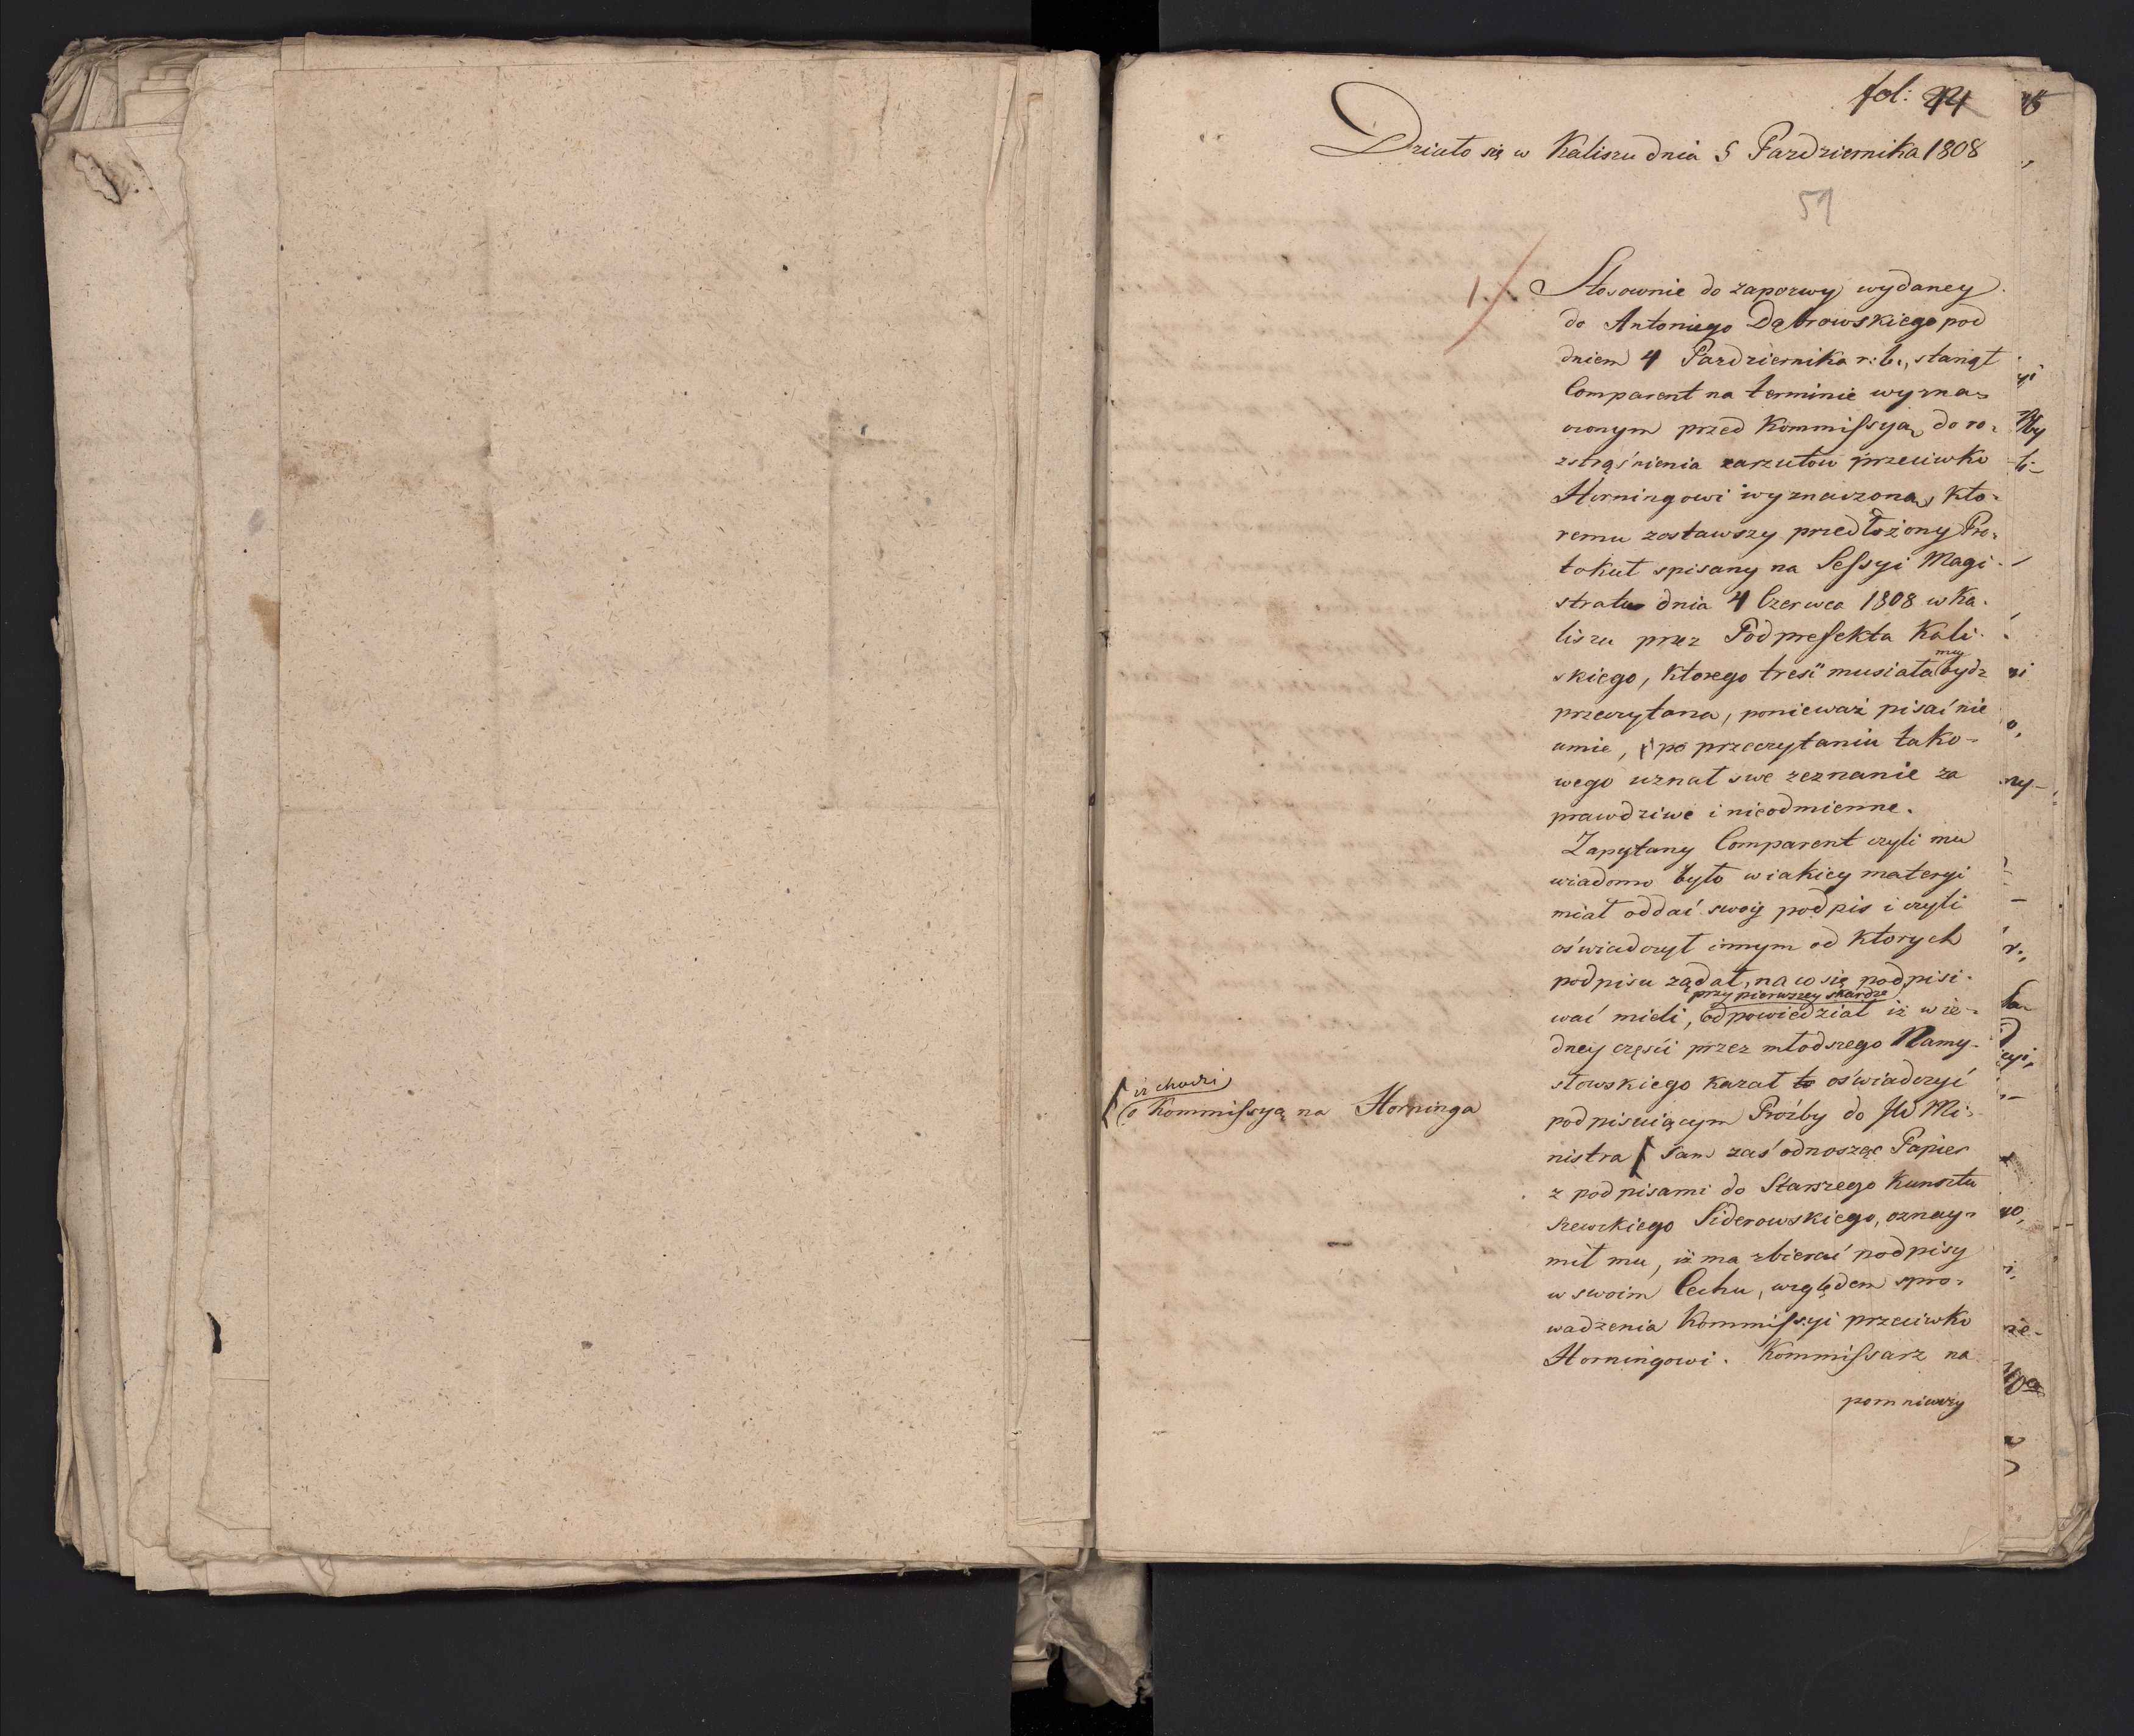 fol: 44
Działo się w Kaliszu dnia 5 Pazdziernika 1808
59
1. Stosownie do zapozwy wydaney
do Antoniego Dąbrowskiego pod
dniem 4 Pazdziernika r: b., stanął
Comparent na terminie wyzna-
czonym przed Kommissyą do ro-
ztrząśnienia zarzutow przeciwko
Horningowi wyznaczoną, kto-
remu zostawszy przedłożony Pro-
tokuł spisany na Sessyi Magi-
stratu dnia 4 Czerwca 1808 w Ka-
liszu przez Podprefekta Kali-
skiego, ktorego treść musiała mu bydź
przeczytana, ponieważ pisać nie
umie, i po przeczytaniu tako-
wego uznał swe zeznanie za
prawdziwe i nieodmienne.
Zapytany Comparent czyli mu
wiadomo było w iakiey materyi
miał oddać swoy podpis i czyli
oświadczył innym od ktorych
podpisu żądał, na co się podpisi-
przy pierwszey skardze
wać mieli, odpowiedział iż w ie-
dney części przez młodszego Namy-
słowskiego kazał to oświadczyć
podpisuiącym Proźby do JW Mi-
nistra ( Sam zaś odnosząc Papier
iż chodzi
o Kommissyą na Horninga
z podpisami do Starszego Kunsztu
Szewckiego Siderowskiego, oznay-
mił mu, iż ma zbierać podpisy
w swoim Cechu, względem spro-
wadzenia Kommissyi przeciwko
Horningowi. Kommissarz na
pomniawszy